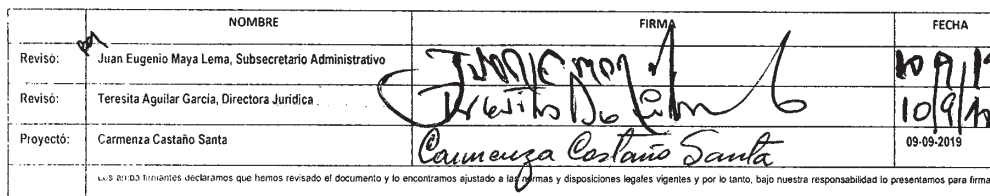 NOMBRE FIRMA FECHA
Revisó: Juan Eugenio Maya Lema, Subsecretario Administrativo
Revisó: Teresita Aguilar García, Directora Jurídica 10/9/
Proyectó: Carmenza Castaño Santa Carmenza Castaño Santa 09-09-2019
Los arriba firmantes declaramos que hemos revisado el documento y lo encontramos ajustado a las normas y disposiciones legales vigentes y por lo tanto, bajo nuestra responsabilidad lo presentamos para firma